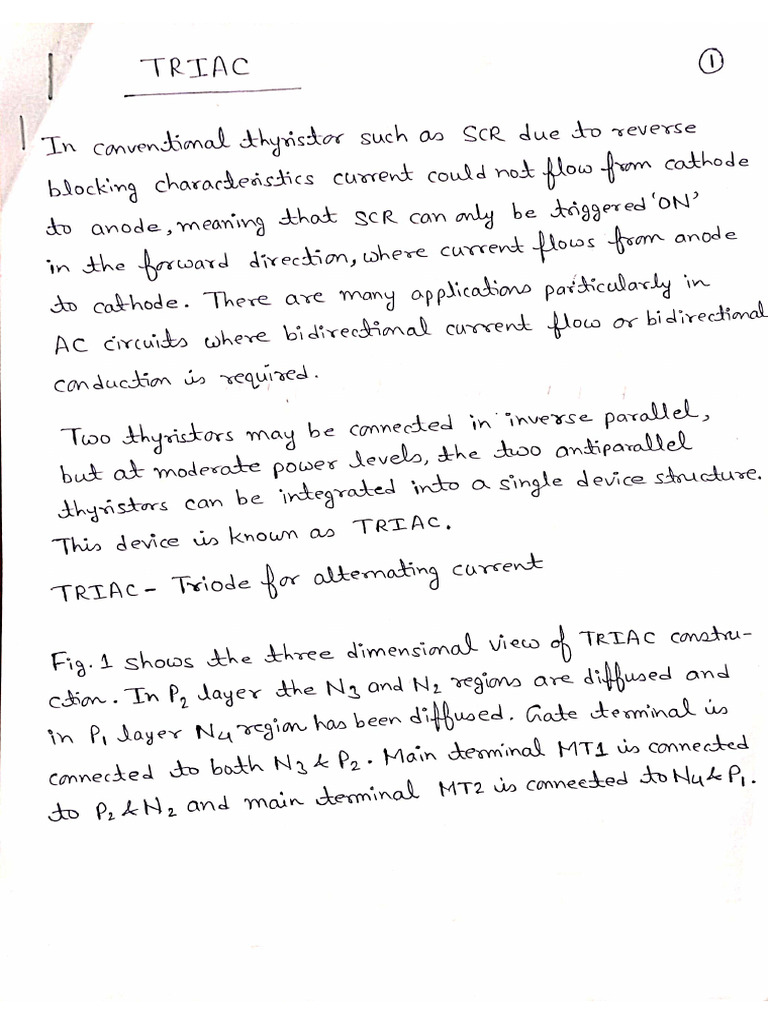 TRIAC
①
In conventional thyristor such as SCR due to reverse
blocking characteristics current could not flow from cathode
to anode, meaning that SCR can only be triggered 'ON'
in the forward direction, where current flows from anode
to cathode. There are many applications particularly in
AC circuits where bidirectional current flow or bidirectional
conduction is required.
Two thyristors may be connected in inverse parallel,
but at moderate power levels, the two antiparallel
thyristors can be integrated into a single device structure.
This device is known as TRIAC.
TRIAC - Triode for alternating current
Fig. 1 shows the three dimensional view of TRIAC constru-
ction. In P₂ layer the N3 and N2 regions are diffused and
in P₁ layer N4 region has been diffused. Gate terminal is
connected to both N3 & P₂. Main terminal MT1 is connected
to P₂ & N₂ and main terminal MT2 is connected to N4 & P₁.